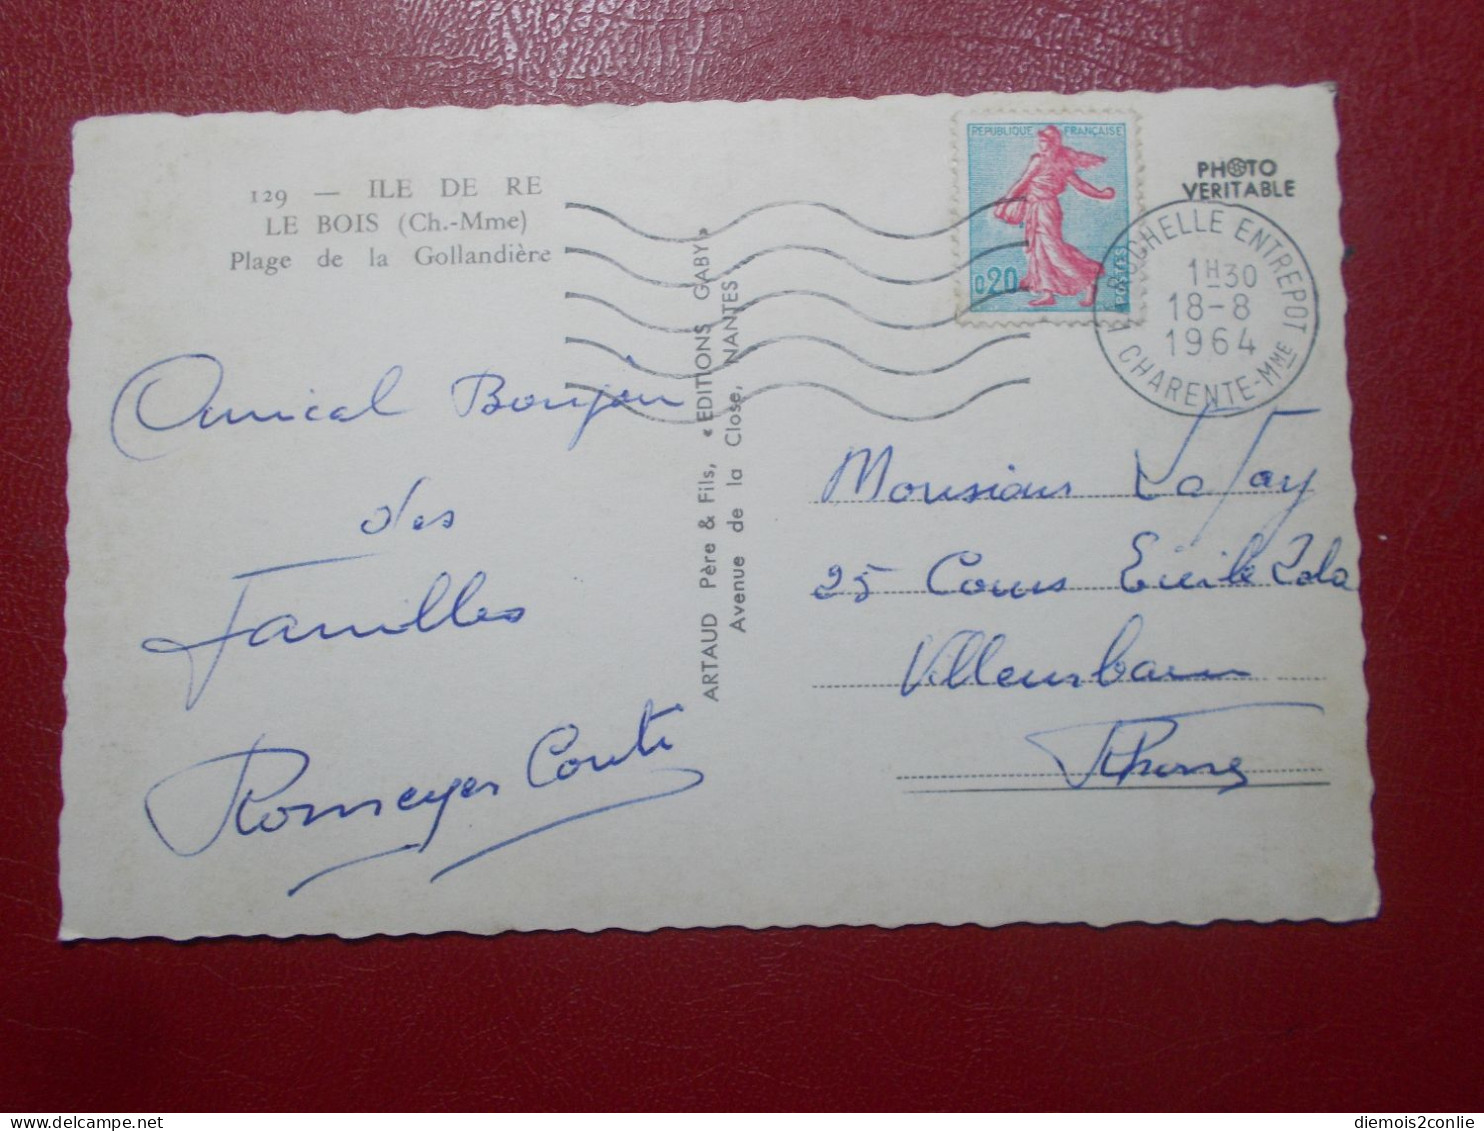 129 — ILE DE RE
LE BOIS (Ch.-Mme)
Plage de la Gollandière
REPUBLIQUE FRANÇAISE
0,20
POSTES
PHOTO
VERITABLE
LA ROCHELLE ENTREPOT
1H30
18-8
1964
CHARENTE-MME
ARTAUD Père & Fils, « EDITIONS GABY »
Avenue de la Close, NANTES
Amical Bonjour
des
Familles
Romeyer Conti
Monsieur Lafay
25 Cours Emile Zola
Villeurbanne
Rhône
diemois2conlie
delcampe.net